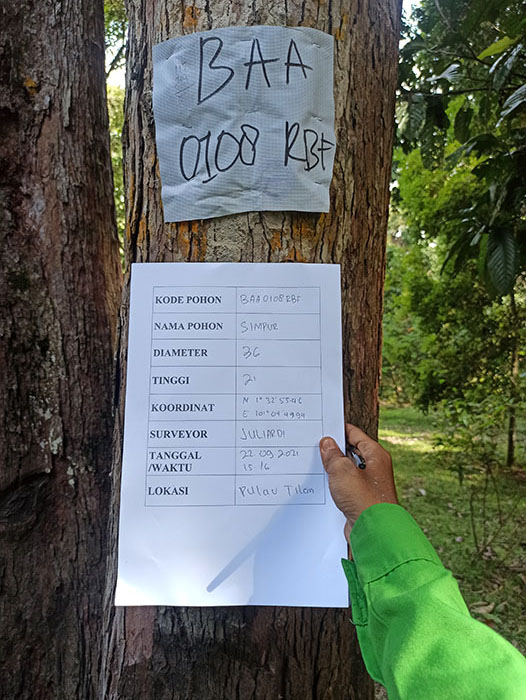 BAA
0108 RBF
KODE POHON BAA0108RBF
NAMA POHON SIMPUR
DIAMETER 36
TINGGI 21
KOORDINAT N 1° 32' 5546
E 101° 04 4994
SURVEYOR JULIARDI
TANGGAL 22 09 2021
/WAKTU 15 16
LOKASI Pulau Tilan